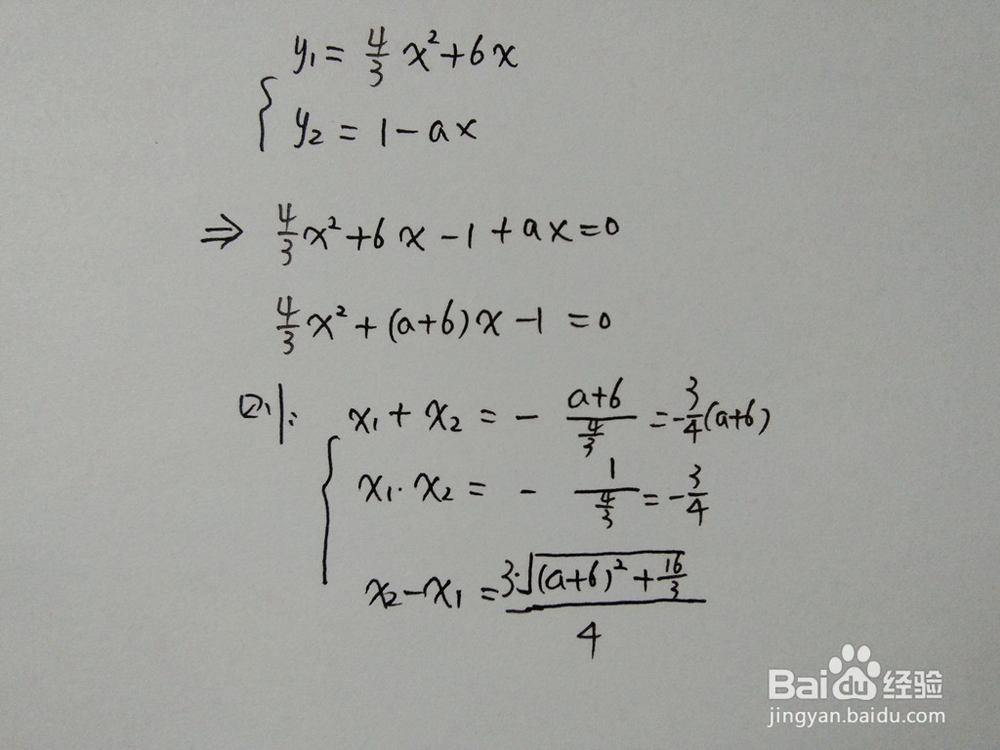 y₁ = 4/3 x² + 6x
y₂ = 1 - ax
⇒ 4/3 x² + 6x - 1 + ax = 0
4/3 x² + (a+6)x - 1 = 0
则: x₁ + x₂ = - (a+6)/(4/3) = -3/4 (a+6)
x₁·x₂ = - 1/(4/3) = -3/4
x₂ - x₁ = 3·√((a+6)² + 16/3) / 4
Baidu 经验
jingyan.baidu.com